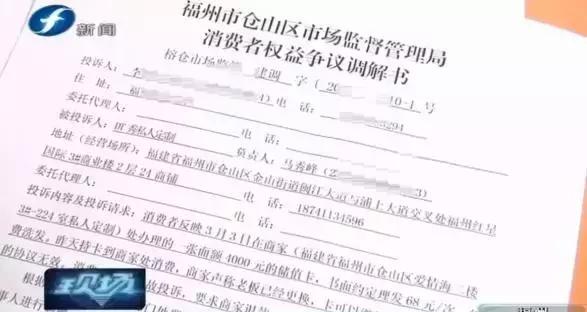 新闻
福州市仓山区市场监督管理局
消费者权益争议调解书
榕仓市场监 建调 字(20 10-1号
投诉人:李 电话: 3294
住址:福
委托代理人: 电话:
被投诉人:匠秀私人定制 负责人:马秀峰(2 3)
地址(经营场所):福建省福州市仓山区金山街道闽江大道与浦上大道交叉处福州红星
国际3#商业楼2层24商铺
委托代理人: 电话:18741134596
投诉内容及投诉请求:消费者反映3月3日在商家(福建省福州市仓山区爱情海二楼
3#-224室私人定制)处办理的一张面额4000元的储值卡,书面约定理发68元/次,
费洗发,昨天持卡到商家处消费,商家声称老板已经更换,卡可以
的协议无效;消费 故投诉,要求商家退
根据
事人进行
现场